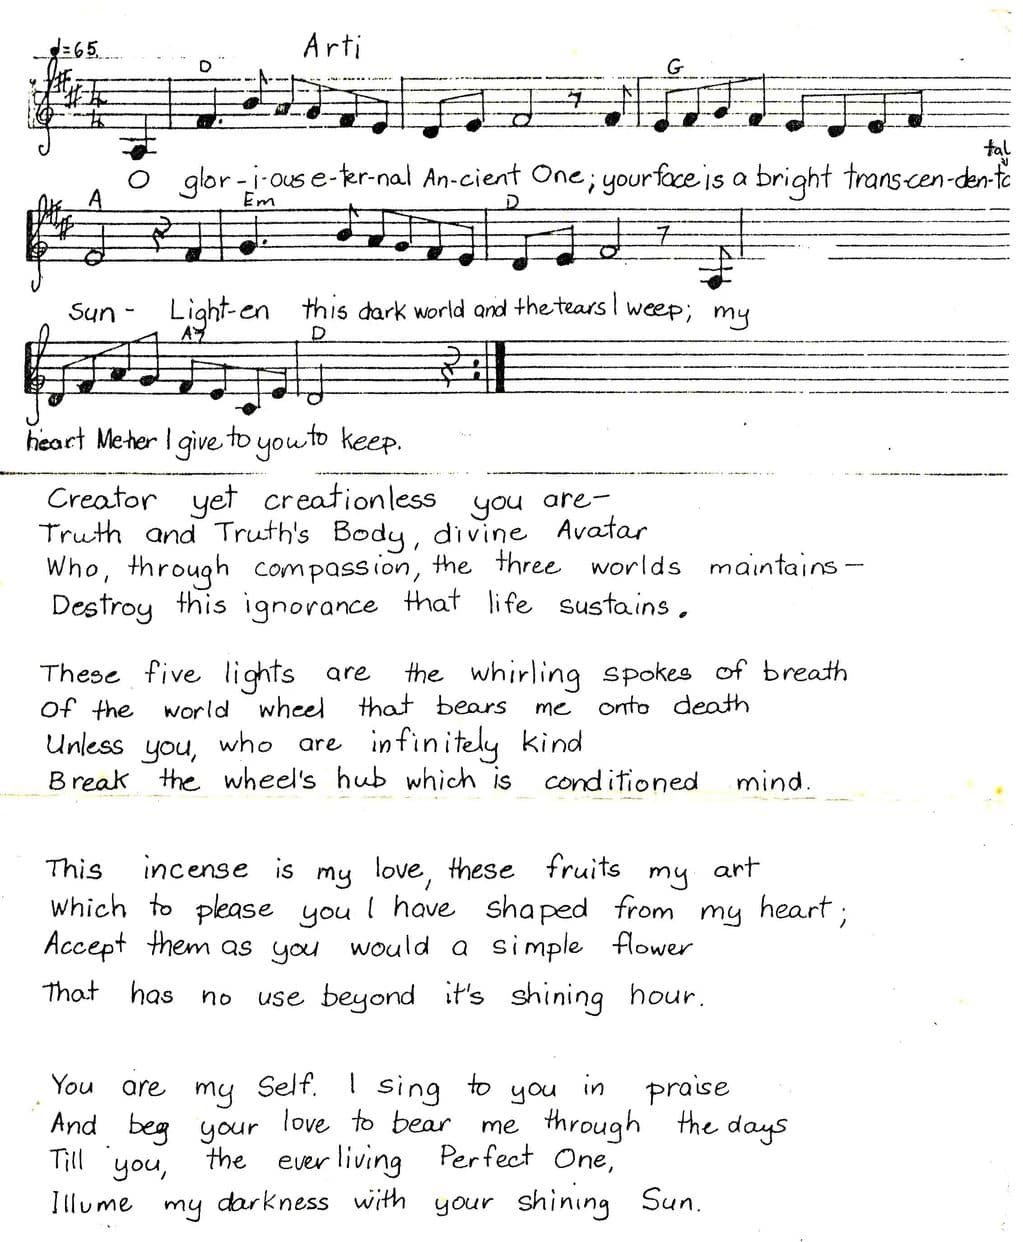 ♩=65.
Arti
D G
O glor-i-ous e-ter-nal An-cient One; your face is a bright trans-cen-den-tal
A Em D
Sun- Light-en this dark world and the tears I weep; my
A7 D
heart Meher I give to you to keep.
Creator yet creationless you are-
Truth and Truth's Body, divine Avatar
Who, through compassion, the three worlds maintains-
Destroy this ignorance that life sustains.
These five lights are the whirling spokes of breath
Of the world wheel that bears me onto death
Unless you, who are infinitely kind
Break the wheel's hub which is conditioned mind.
This incense is my love, these fruits my art
Which to please you I have shaped from my heart;
Accept them as you would a simple flower
That has no use beyond it's shining hour.
You are my Self. I sing to you in praise
And beg your love to bear me through the days
Till you, the everliving Perfect One,
Illume my darkness with your shining Sun.